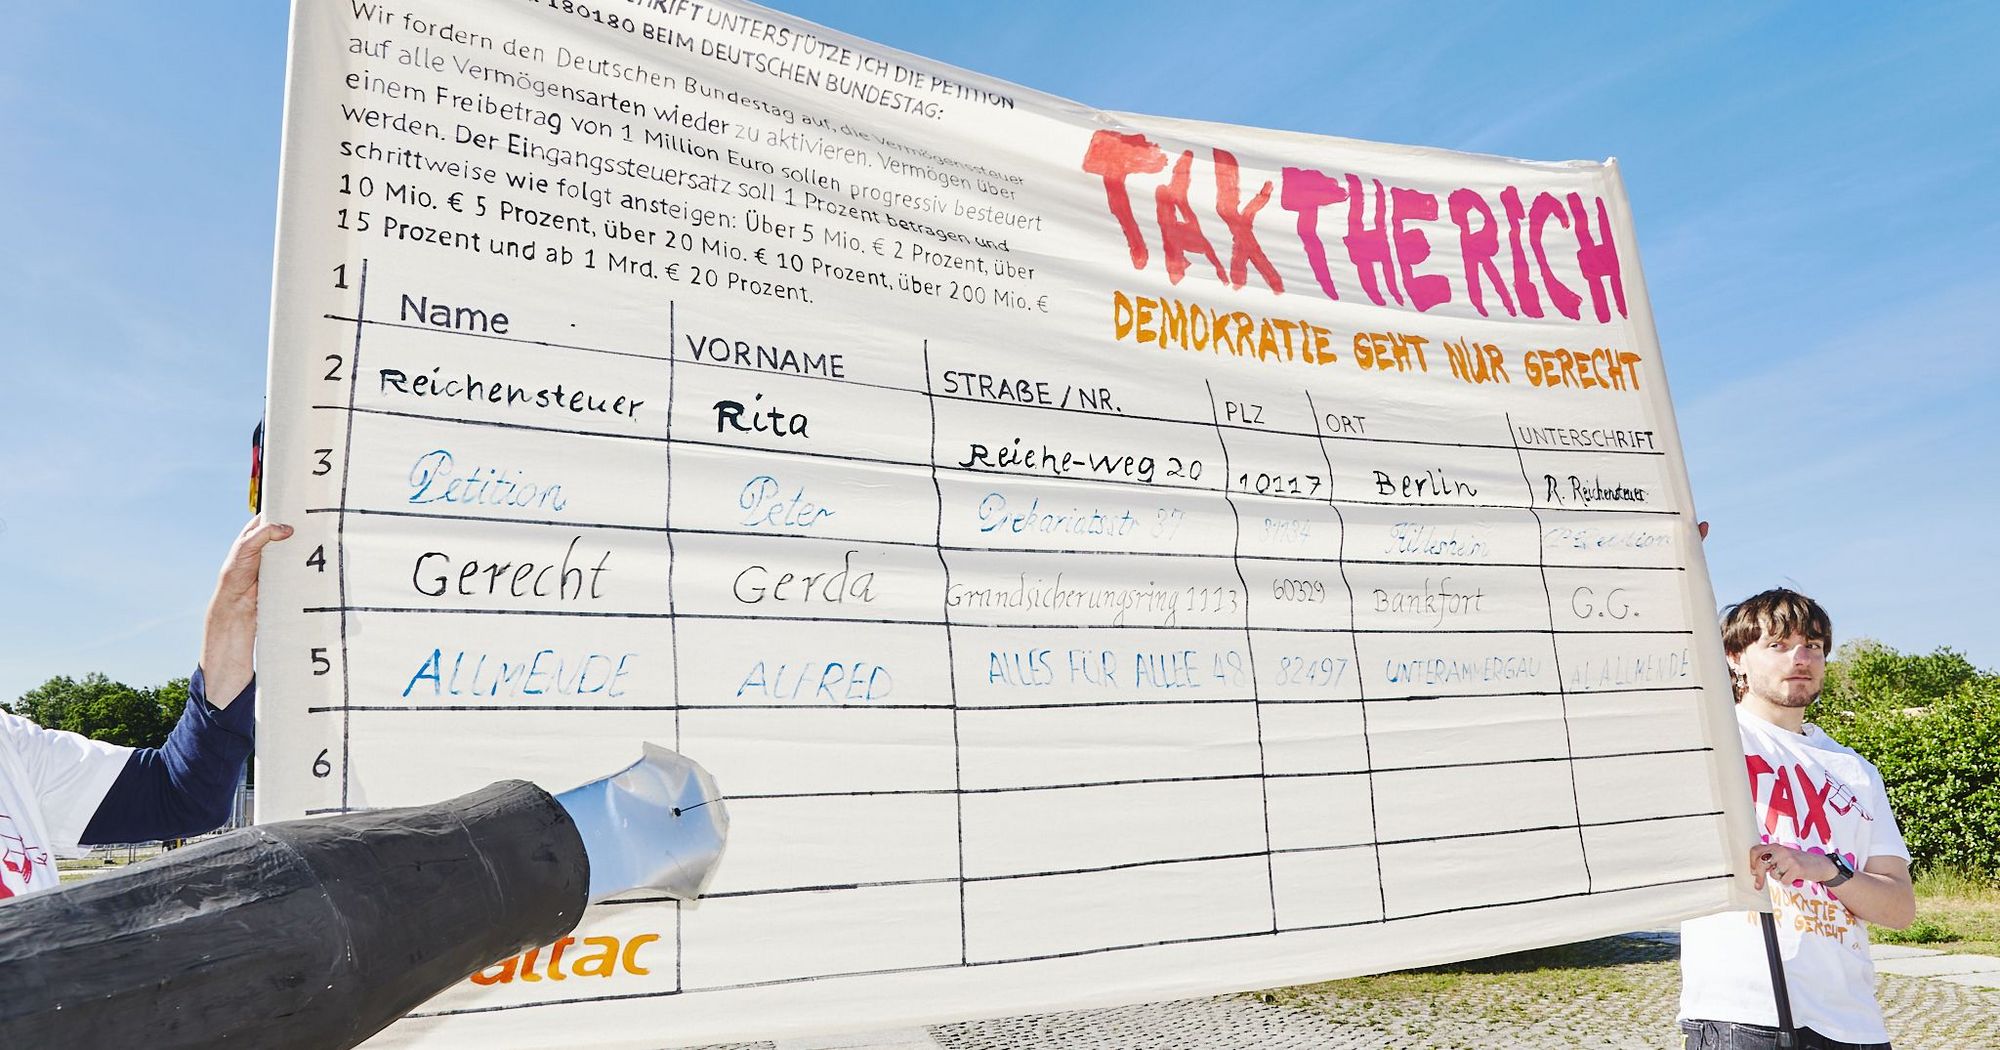 UNTERSTÜTZE ICH DIE PETITION
180180 BEIM DEUTSCHEN BUNDESTAG:
Wir fordern den Deutschen Bundestag auf, die Vermögenssteuer
auf alle Vermögensarten wieder zu aktivieren. Vermögen über
einem Freibetrag von 1 Million Euro sollen progressiv besteuert
werden. Der Eingangssteuersatz soll 1 Prozent betragen und
schrittweise wie folgt ansteigen: Über 5 Mio. € 2 Prozent, über
10 Mio. € 5 Prozent, über 20 Mio. € 10 Prozent, über 200 Mio. €
15 Prozent und ab 1 Mrd. € 20 Prozent.
TAX THE RICH
DEMOKRATIE GEHT NUR GERECHT
1 Name VORNAME STRAßE / NR. PLZ ORT UNTERSCHRIFT
2 Reichensteuer Rita Reiche-Weg 20 10117 Berlin R. Reichensteuer
3 Petition Peter Prekariatsstr 37 Hillesheim
4 Gerecht Gerda Grundsicherungsring 1113 60329 Bankfort G.G.
5 ALLMENDE ALFRED ALLES FÜR ALLEE 48 82497 UNTERAMMERGAU AL ALLMENDE
6
attac
TAX
NUR GERECHT